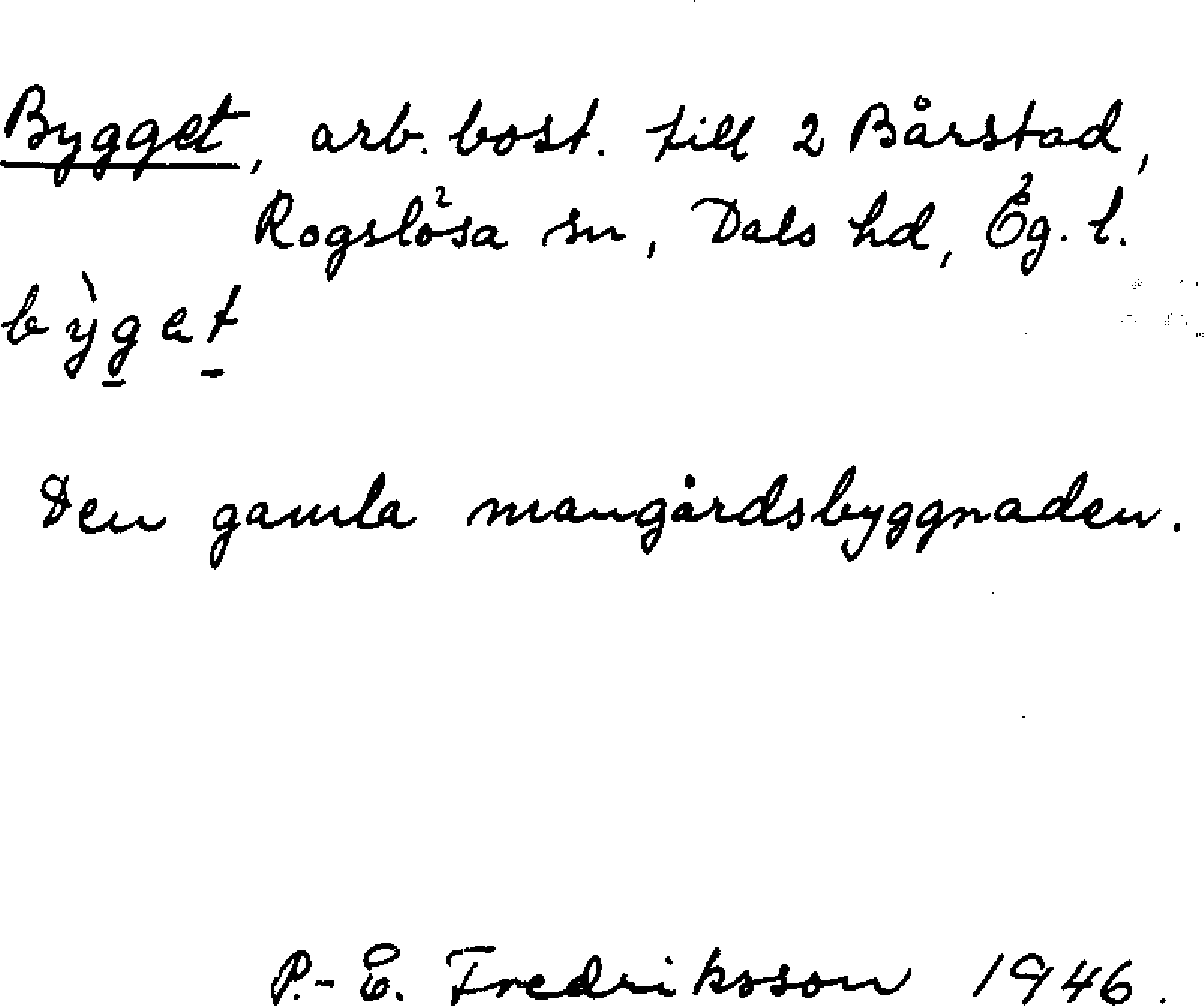 Bygget, arb. bost. till 2 Bårstad,
Rogslösa sn, Dals hd, Ög. l.
bỳget
Den gamla mangårdsbyggnaden.
P.-E. Fredriksson 1946.